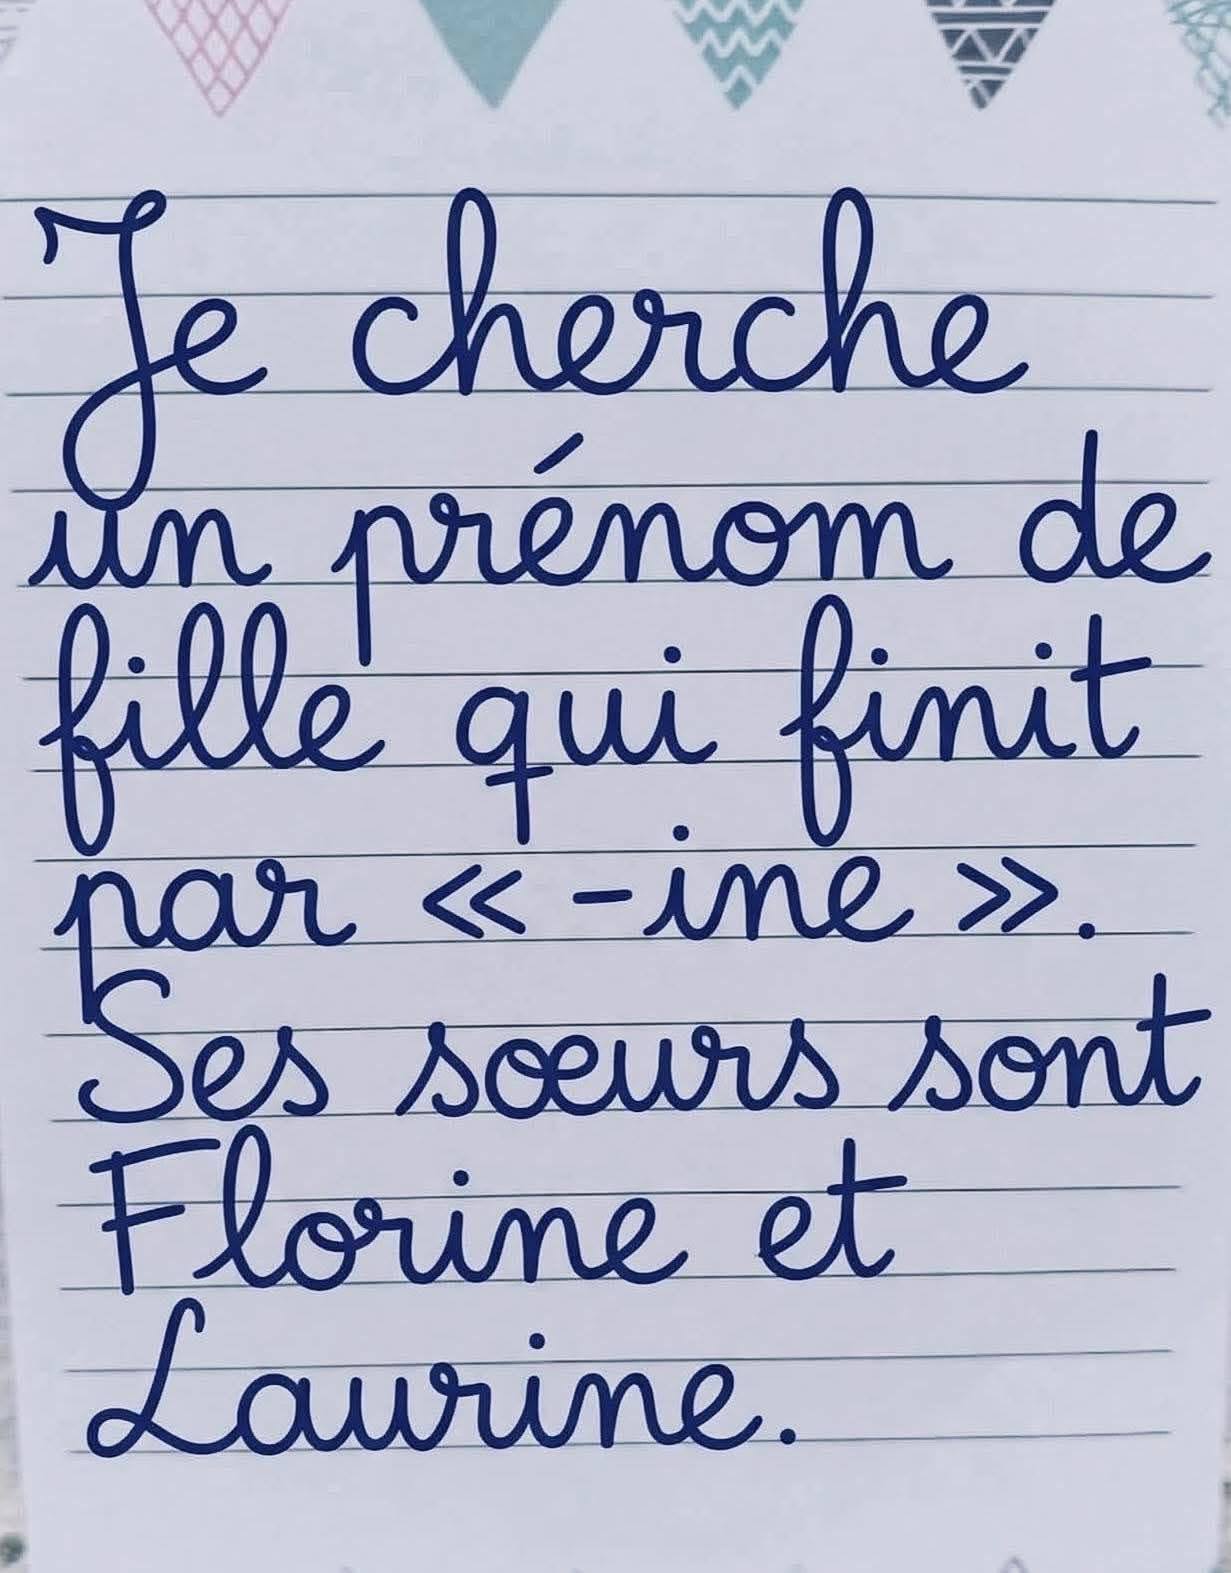 Je cherche
un prénom de
fille qui finit
par « -ine ».
Ses sœurs sont
Florine et
Laurine.